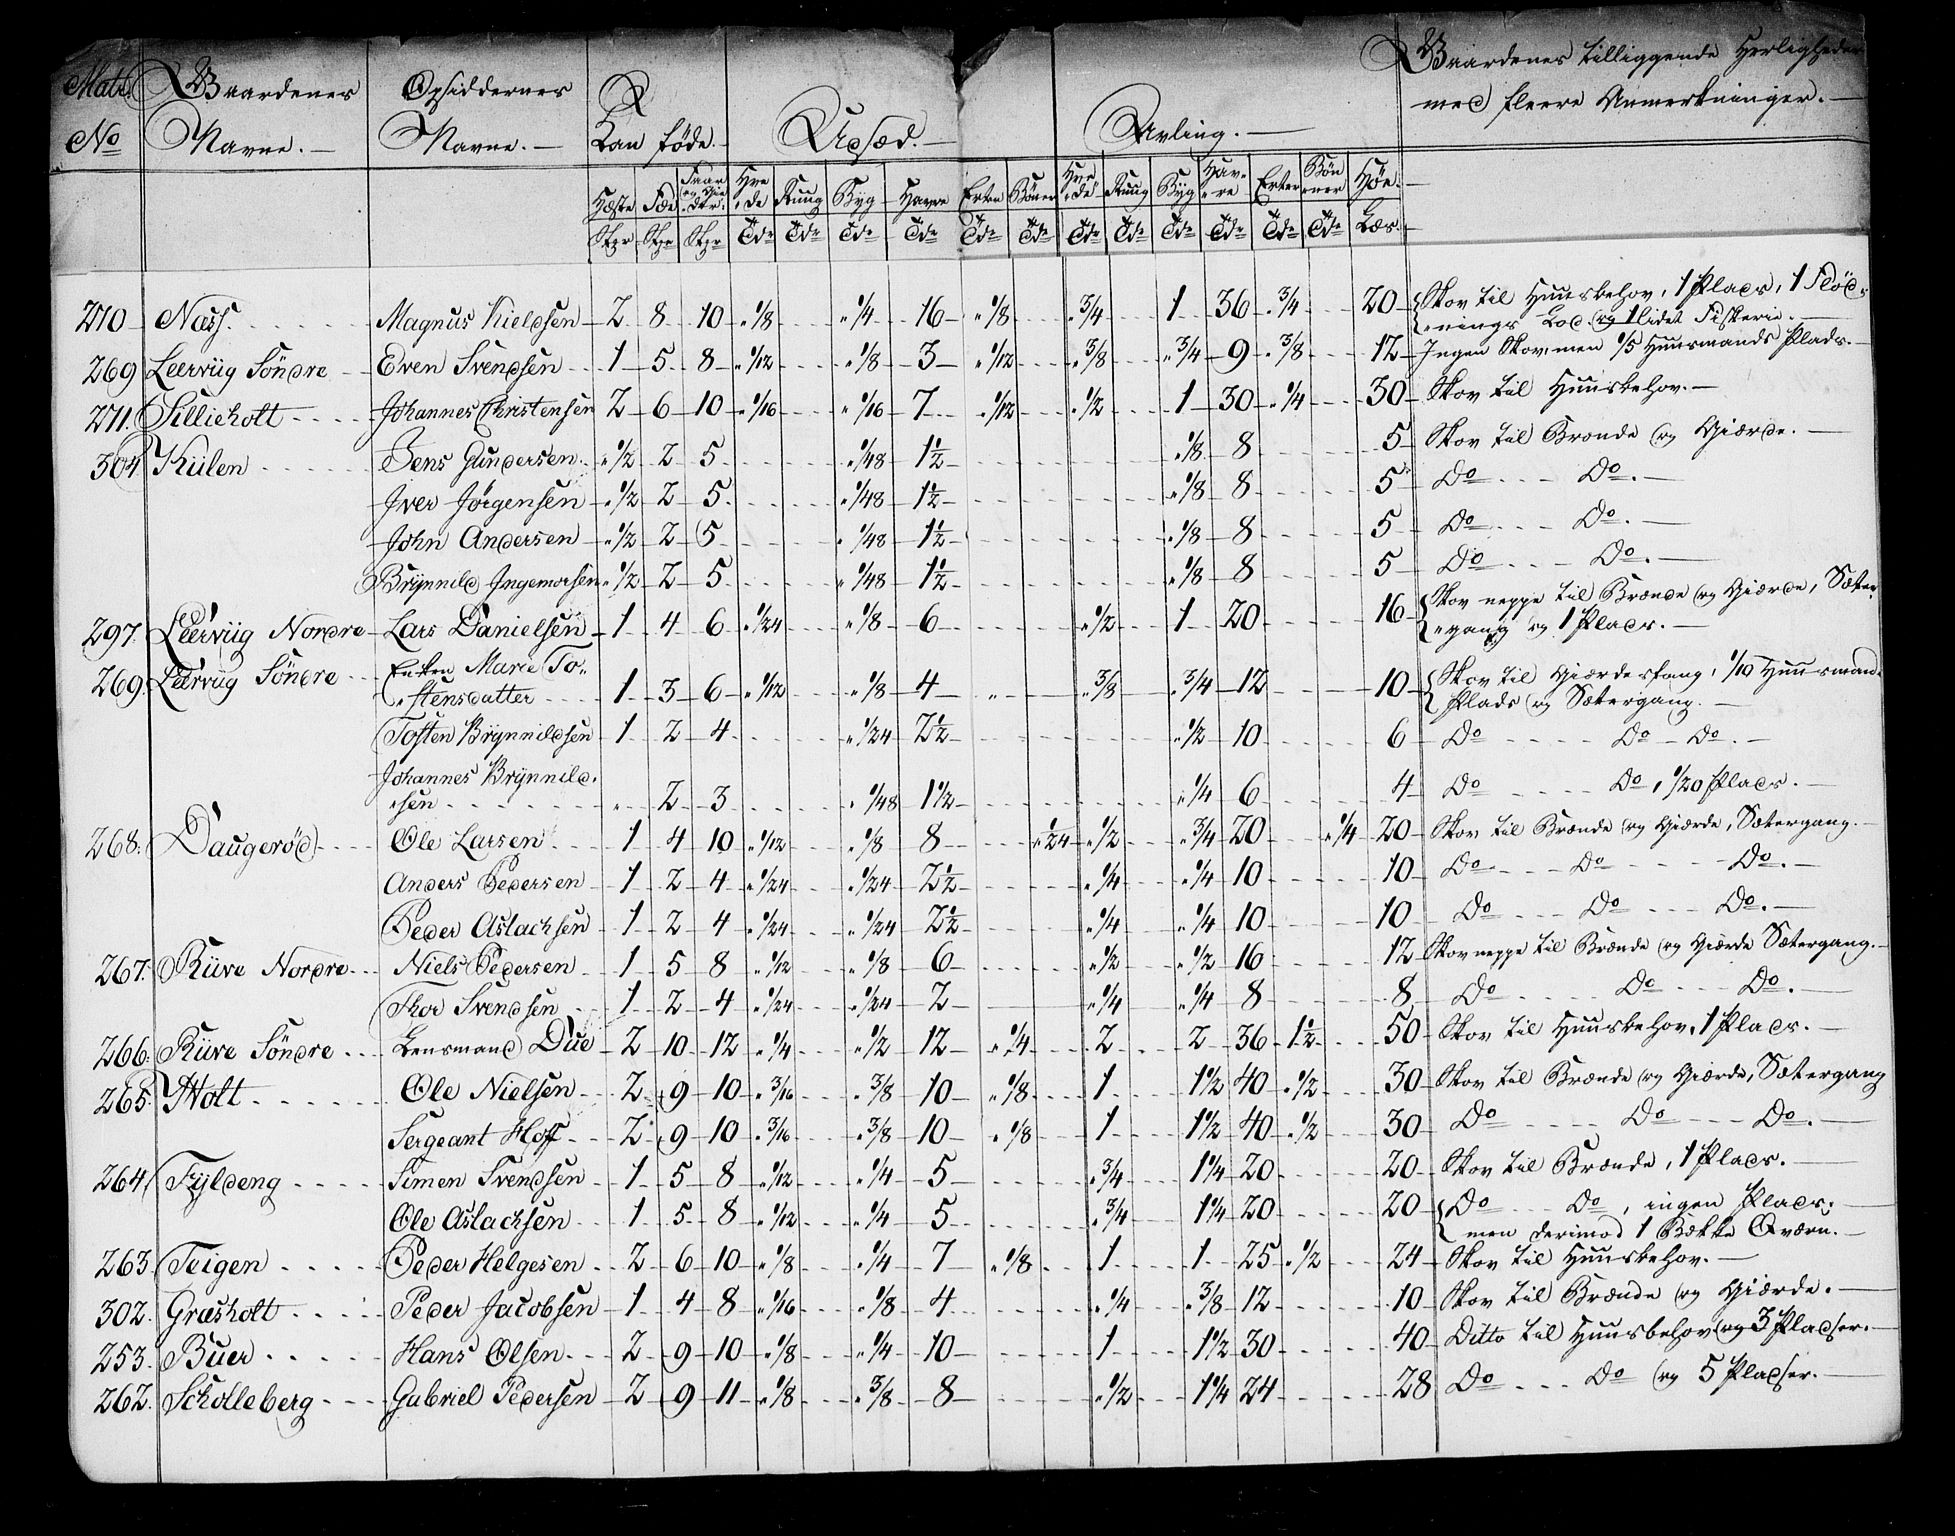 Matr. Gaardenes Opsiddernes Kan föde. Udsæd. Avling. Gaardenes tilliggende Herligheder
No Navne. Navne. med fleere Anmerkninger.
Hæste Fæe Faar og Giedter Hvede Rüug Byg Havre Erter Böner Hvede Rüug Byg Havre Erter Bönner Höe.
Stkr Stkr Stkr Tdr Tdr Tdr Tdr Tdr Tdr Tdr Tdr Tdr Tdr Tdr Tdr Læs
270 Næss. Magnus Kieldsen 2 8 10 " 1/8 " 1/4 16 " 1/8 " 3/4 1 36 " 3/4 20 Skov til Huusbehov, 1 Plads, 1 Flöd-
"nings Lod og lidet Fiskerie.
269 Leervüg Söndre Even Svendsen 1 5 8 " 1/12 " 1/8 3 " 1/12 " 3/8 " 3/4 9 " 3/8 12 Ingen Skov, men 1/5 Huusmands Plads.
271. Sillieholt Johannes Christensen 2 6 10 " 1/16 " 1/16 7 " 1/12 " 1/2 1 30 " 1/4 30 Skov til Huusbehov.
304 Kiilen Jens Gundersen " 1/2 2 5 " 1/48 1 1/2 " 1/8 8 5 Skov til Brænde og Giærde.
Iver Jörgensen " 1/2 2 5 " 1/48 1 1/2 " 1/8 8 5 Do Do.
John Andersen " 1/2 2 5 " 1/48 1 1/2 " 1/8 8 5 Do Do.
Brynnild Ingemorsen " 1/2 2 5 " 1/48 1 1/2 " 1/8 8 5 Do Do.
297. Leervüg Nordre Lars Danielsen 1 4 6 " 1/24 " 1/8 6 " 1/2 1 20 16 Skov neppe til Brænde og Giærde, Sæter
"gang og 1 Plads.
269. Leervüg Söndre Enken Marie To"
"stensdatter 1 3 6 " 1/12 " 1/8 4 " " 3/8 " 3/4 12 10 Skov til Giærdesfang, 1/10 Huusmands
Plads og Sætergang.
Tosten Brynnildsen 1 2 4 " 1/24 2 1/2 " 1/2 10 6 Do Do Do.
Johannes Brynnild"
"sen " 2 3 " 1/48 1 1/2 " 1/4 6 4 Do Do, 1/20 Plads.
268. Daugeröd Ole Larsen 1 4 10 " 1/12 " 1/8 8 " 1/24 " 1/2 " 3/4 20 " 1/4 20 Skov til Brænde og Giærde, Sætergang.
Anders Pedersen 1 2 4 " 1/24 " 1/24 2 1/2 " 1/4 " 1/4 10 10 Do Do Do.
Peder Aslachsen 1 2 4 " 1/24 " 1/24 2 1/2 " 1/4 " 1/4 10 10 Do Do Do.
267. Rüve Nordre Niels Pedersen 1 5 8 " 1/12 " 1/8 6 " 1/2 " 1/2 16 12 Skov neppe til Brænde og Giærde Sætergang.
Thor Svendsen 1 2 4 " 1/24 " 1/24 2 " 1/4 " 1/4 8 8 Do Do Do.
266. Rüve Söndre Lensmand Due 2 10 12 " 1/4 " 1/2 12 " 1/4 2 2 36 1 1/2 50 Skov til Huusbehov, 1 Plads.
265. Holt Ole Nielsen 2 9 10 " 3/16 " 3/8 10 " 1/8 1 1 1/2 40 " 1/2 30 Skov til Brænde og Giærde, Sætergang
Sergeant Hoff 2 9 10 " 3/16 " 3/8 10 " 1/8 1 1 1/2 40 " 1/2 30 Do Do Do.
264. Fyldeng Simen Svendsen 1 5 8 " 1/12 " 1/4 5 " 3/4 1 1/4 20 20 Skov til Brænde, 1 Plads.
Ole Aslachsen 1 5 8 " 1/12 " 1/4 5 " 3/4 1 1/4 20 20 Do Do, ingen Plads;
men derimod 1 Bække Qværn.
263. Teigen Peder Helgesen 2 6 10 " 1/8 " 1/4 7 " 1/8 1 1 25 " 1/2 24 Skov til Huusbehov.
302. Græsholt Peder Jacobsen 1 4 8 " 1/16 " 1/8 4 " 1/4 " 3/8 12 10 Skov til Brænde og Giærde.
253. Buer Hans Olsen 2 9 10 " 1/8 " 1/4 10 1 1 1/2 30 40 Ditto til Huusbehov og 3 Pladser.
262. Scholleberg Gabriel Pedersen 2 9 11 " 1/8 " 3/8 8 " 1/2 1 1/4 24 28 Do Do og 5 Pladser.